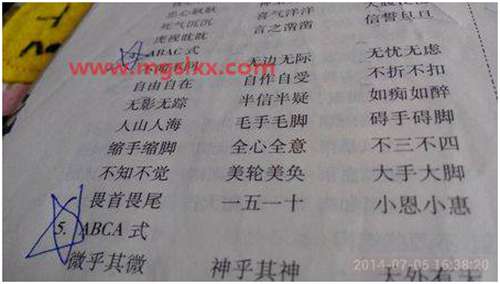 死气沉沉 喜气洋洋
虎视眈眈 言之凿凿 信誓旦旦
ABAC 式 无边无际 无忧无虑
www.mgslxx.com
自由自在 自作自受 不折不扣
无影无踪 半信半疑 如痴如醉
人山人海 毛手毛脚 碍手碍脚
缩手缩脚 全心全意 不三不四
不知不觉 美轮美奂 大手大脚
畏首畏尾 一五一十 小恩小惠
5. ABCA 式
微乎其微 神乎其神 天外有天
2014-07-05 16:38:20